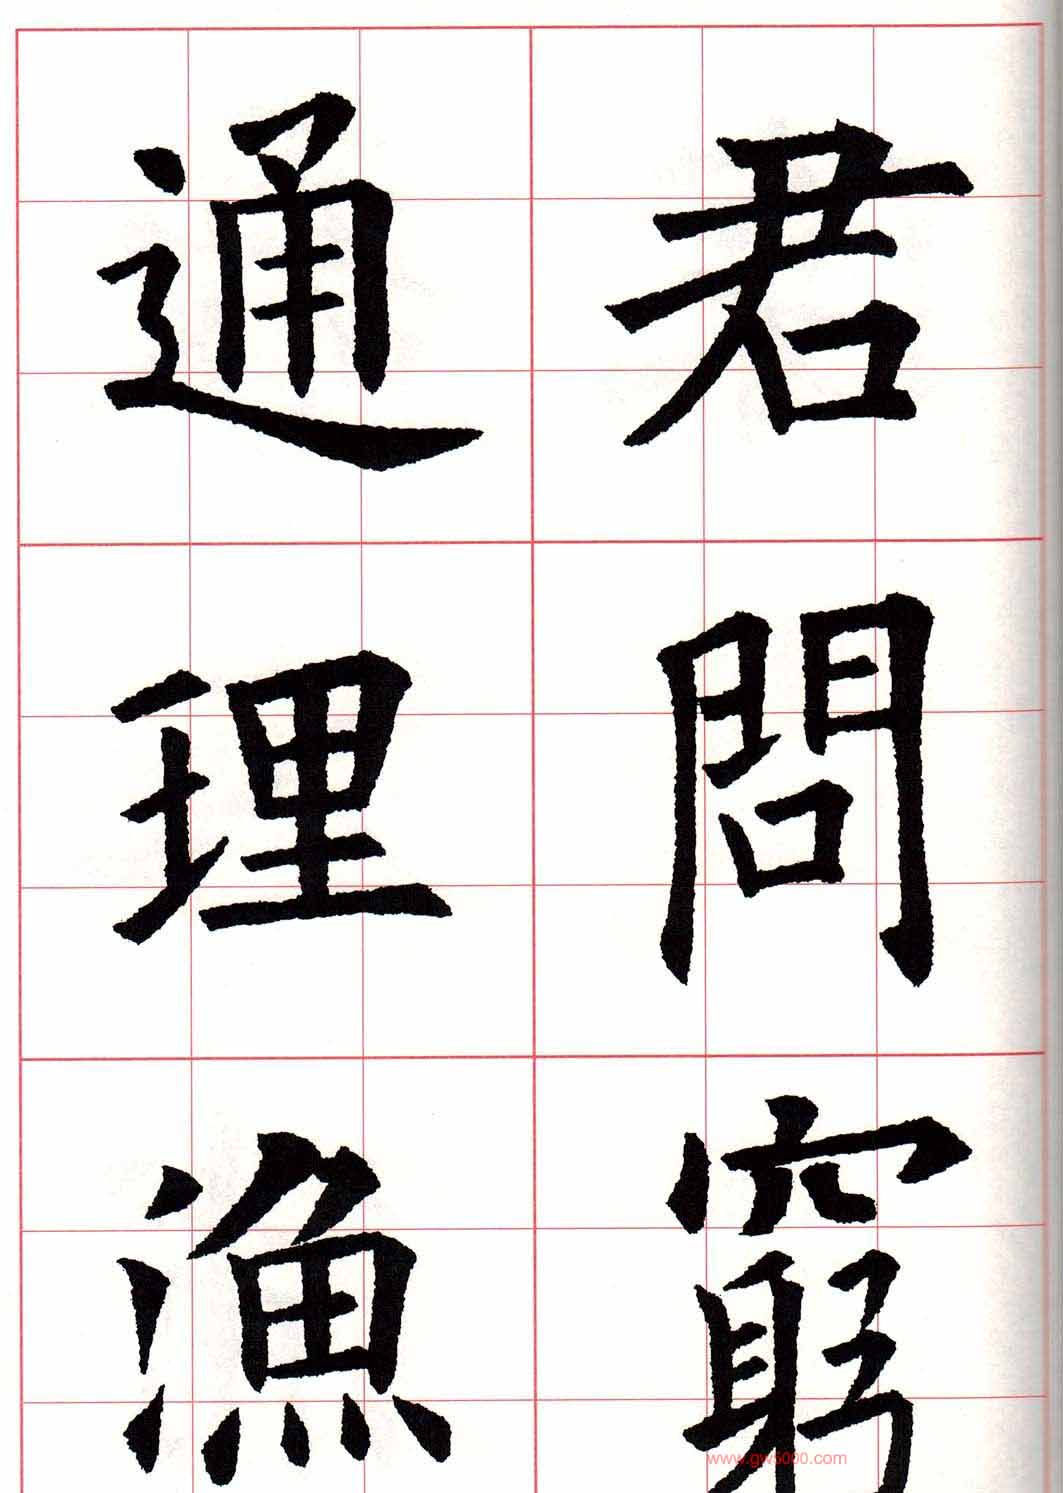 君問窮
通理漁
www.gw5000.com